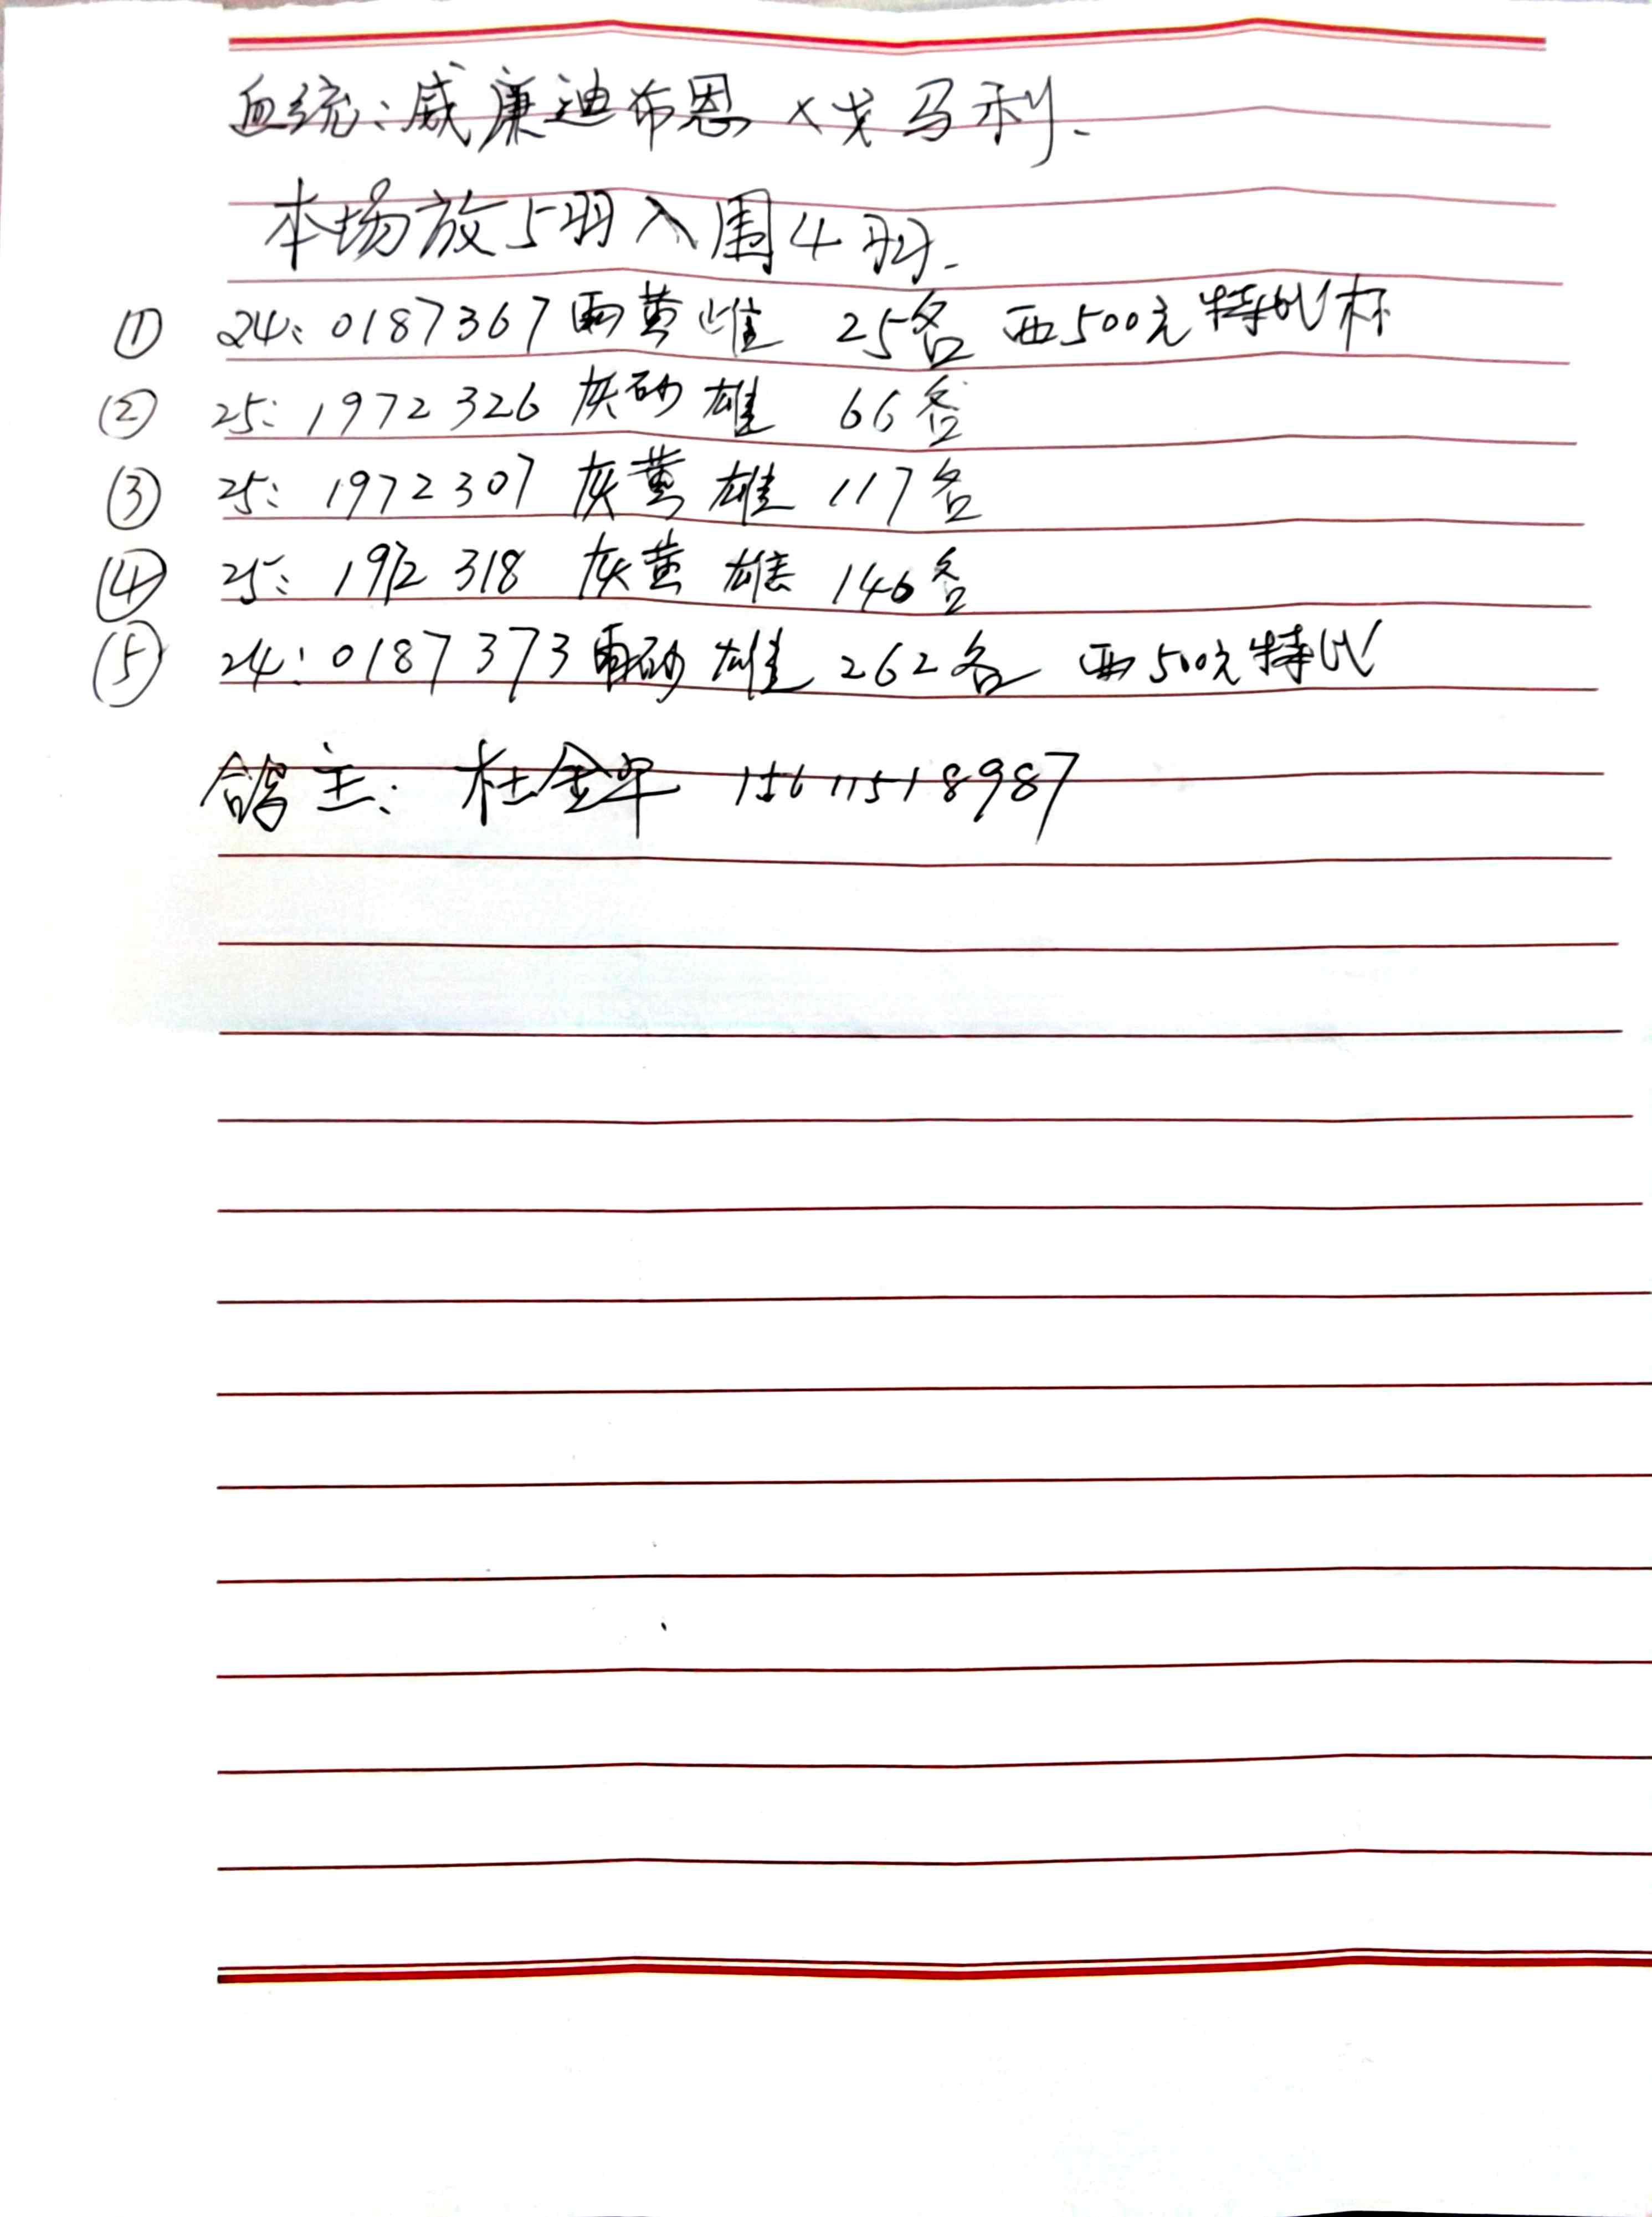 血统：威廉迪布恩 x 戈马利.
本场放5羽入围4羽.
① 24：0187367 雨黄雌 25名 西500元特比杯
② 25：1972326 灰砂雄 66名
③ 25：1972307 灰黄雄 117名
④ 25：1972318 灰黄雄 146名
⑤ 24：0187373 雨砂雄 262名 西500元特比
鸽主：杜金平 15611518987